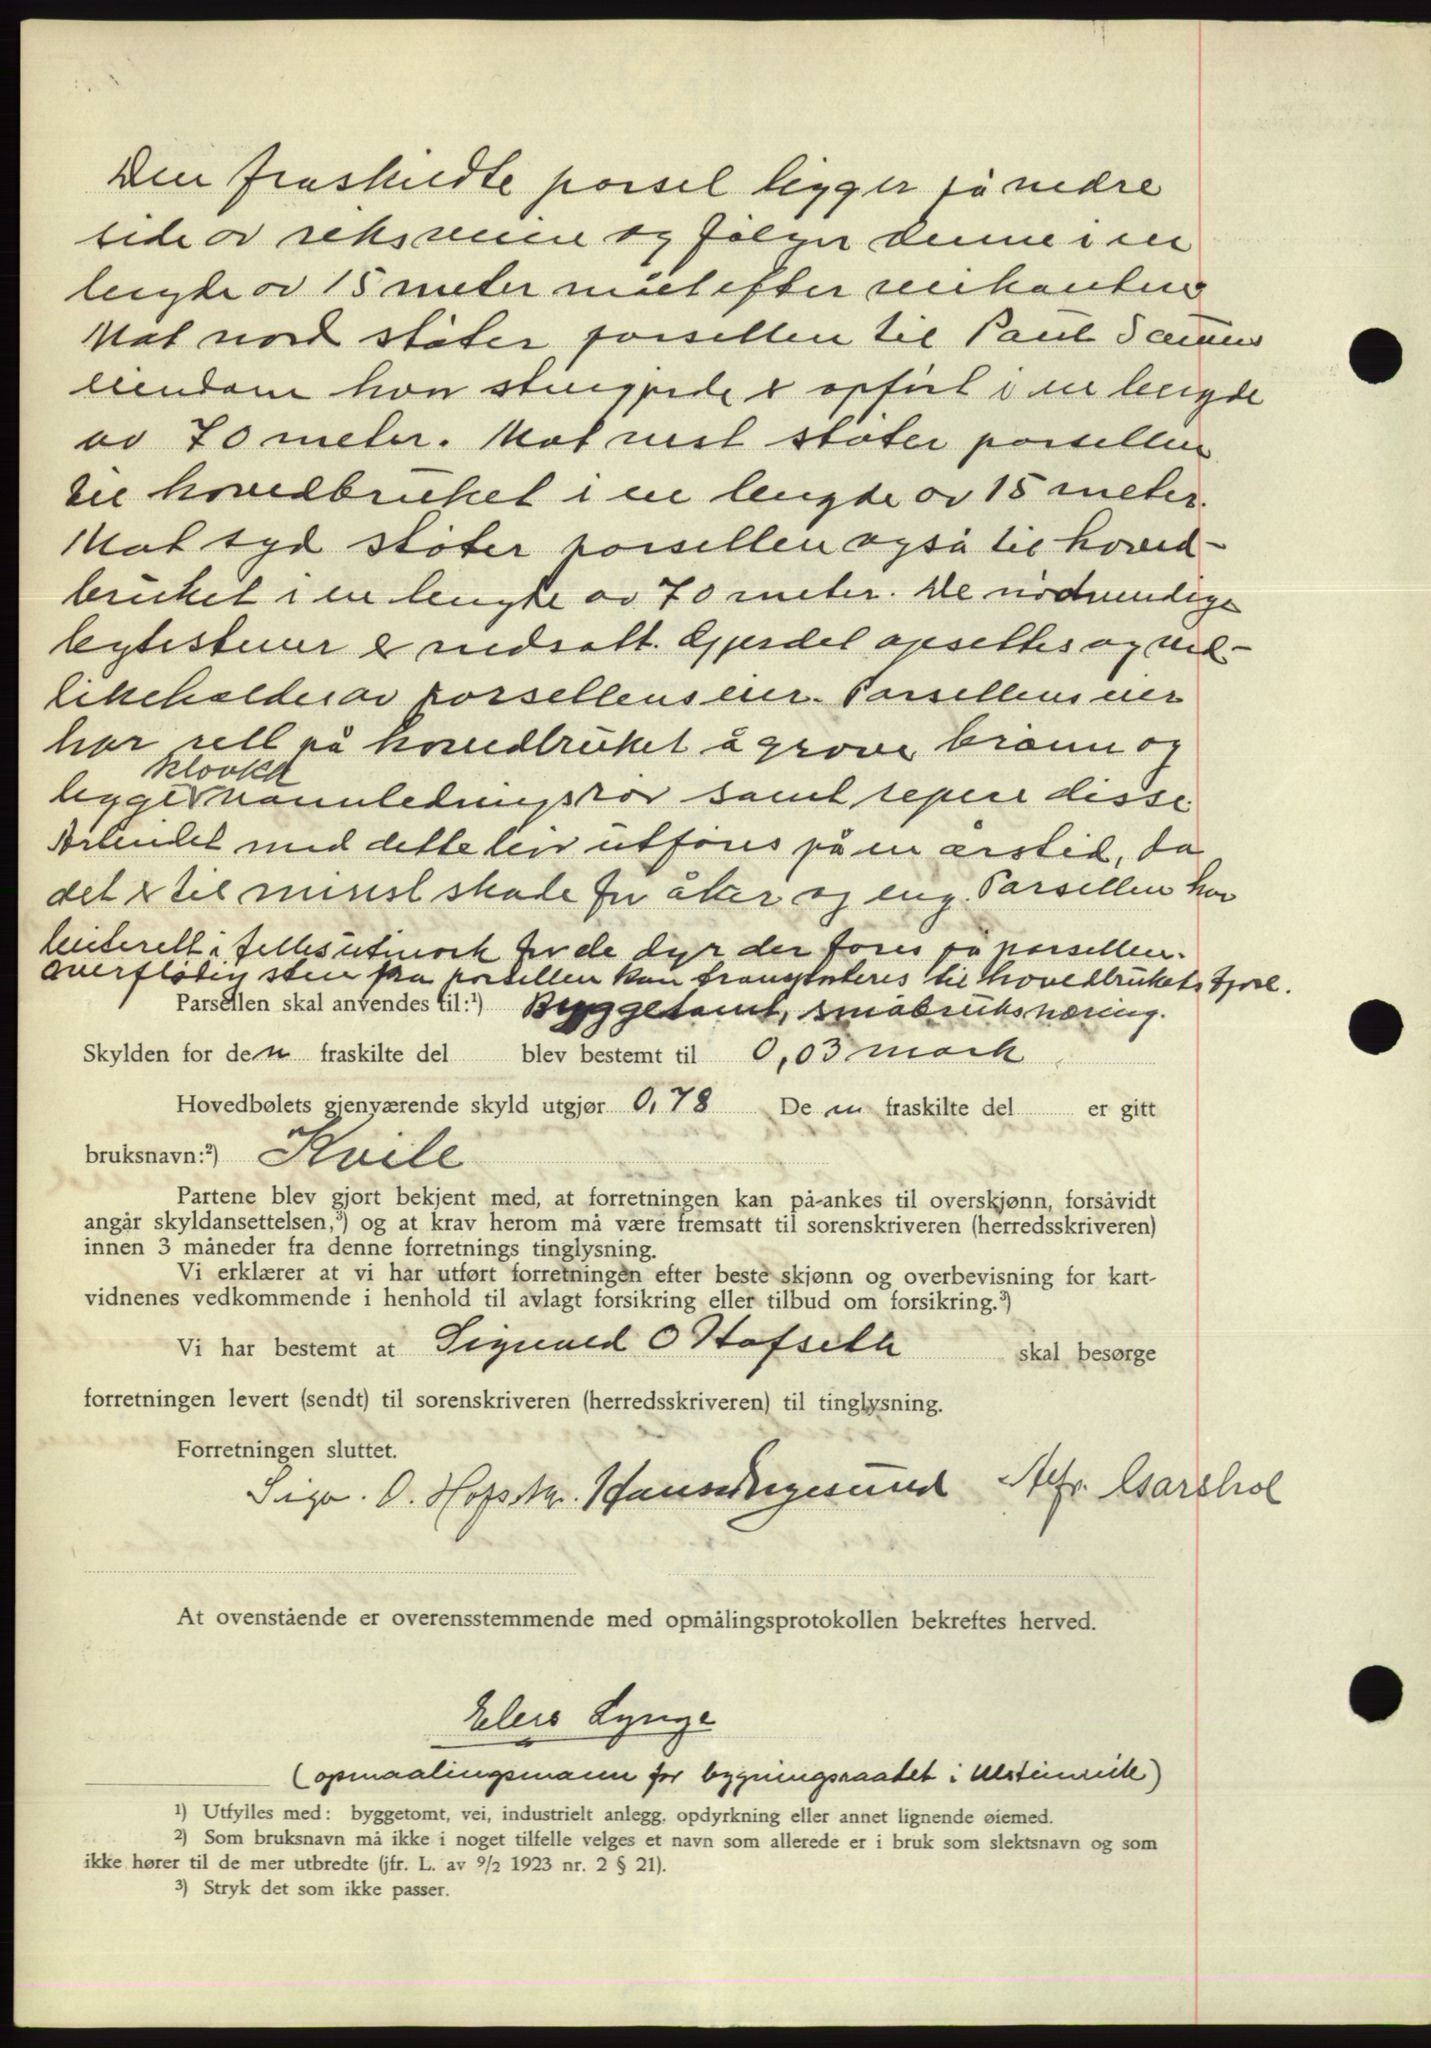 Den fraskildte parsel ligger på nedre
side av riksveien og følger denne i en
lengde av 15 meter målt efter veikanten
Mot nord støter parsellen til Paul
eiendom hvor stengjerde er opført i en lengde
av 70 meter. Mot vest støter parsellen
til hovedbruket i en lengde av 15 meter.
Mot syd støter parsellen også til hoved-
bruket i en lengde av 70 meter. De nødvendige
bytestener er nedsatt. Gjerdet opsettes og ved-
likeholdes av parsellens eier. Parsellens eier
har rett på hovedbruket å grave brønn og
klovkd
legge vannledningsrør samt repere disse.
Arbeidet med dette blir utføres på en årstid, da
det er til minst skade for åker og eng. Parsellen har
beiterett i fellesutmark for de dyr der fores på parsellen.
Overflødig sten fra parsellen kan transporteres til hovedbrukets fjøre.
Parsellen skal anvendes til:¹) Byggetomt, småbruksnæring.
Skylden for den fraskilte del blev bestemt til 0,03 mark
Hovedbølets gjenværende skyld utgjør 0,78 De n fraskilte del er gitt
bruksnavn:²) Kvile
Partene blev gjort bekjent med, at forretningen kan på-ankes til overskjønn, forsåvidt
angår skyldansettelsen,³) og at krav herom må være fremsatt til sorenskriveren (herredsskriveren)
innen 3 måneder fra denne forretnings tinglysning.
Vi erklærer at vi har utført forretningen efter beste skjønn og overbevisning for kart-
vidnenes vedkommende i henhold til avlagt forsikring eller tilbud om forsikring.³)
Vi har bestemt at Sigvald O Hofseth skal besørge
forretningen levert (sendt) til sorenskriveren (herredsskriveren) til tinglysning.
Forretningen sluttet.
Sigv. O. Hofseth. Hans Engesund Alfr. Garshol
At ovenstående er overensstemmende med opmålingsprotokollen bekreftes herved.
Elers Lynge
(opmaalingsmann for bygningsraadet i Ulsteinvik)
¹) Utfylles med: byggetomt, vei, industrielt anlegg. opdyrkning eller annet lignende øiemed.
²) Som bruksnavn må ikke i noget tilfelle velges et navn som allerede er i bruk som slektsnavn og som
ikke hører til de mer utbredte (jfr. L. av 9/2 1923 nr. 2 § 21).
³) Stryk det som ikke passer.